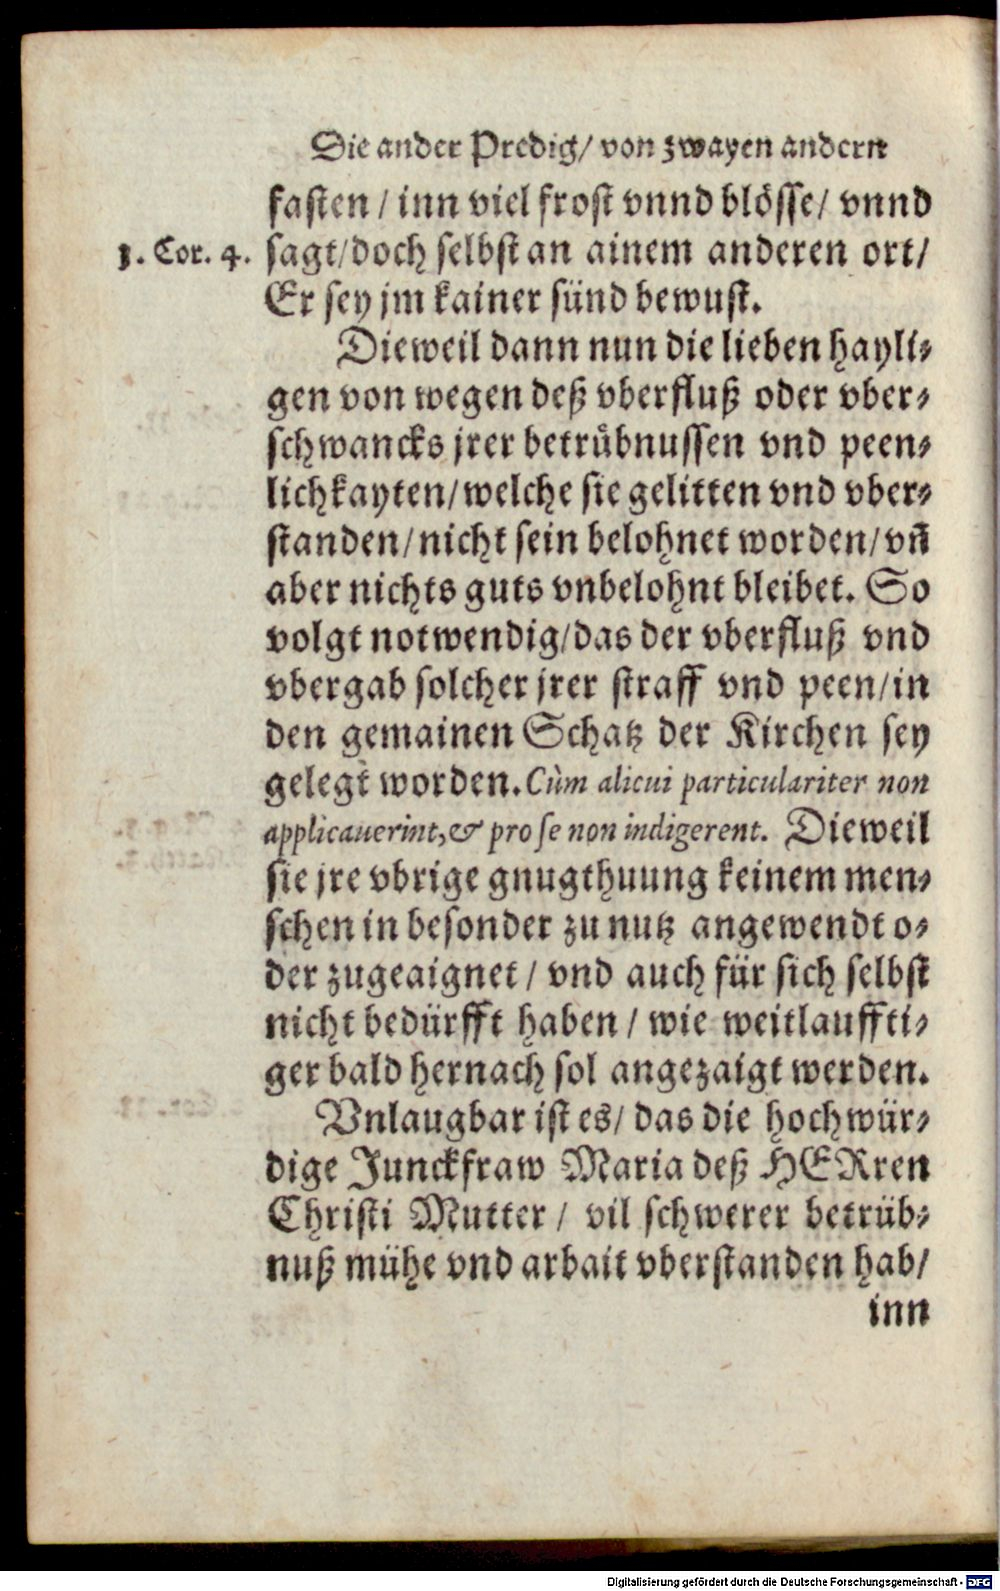 Die ander Predig/ von zwayen andern
fasten / inn viel frost vnnd blösse/ vnnd
1. Cor. 4.
sagt/doch selbst an ainem anderen ort/
Er sey jm kainer sünd bewust.
Dieweil dann nun die lieben hayli-
gen von wegen deß vberfluß oder vber-
schwancks jrer betrübnussen vnd peen-
lichkayten/welche sie gelitten vnd vber-
standen/nicht sein belohnet worden/vñ
aber nichts guts vnbelohnt bleibet. So
volgt notwendig/das der vberfluß vnd
vbergab solcher jrer straff vnd peen/in
den gemainen Schatz der Kirchen sey
gelegt worden. Cùm alicui particulariter non
applicauerint,& pro se non indigerent. Dieweil
sie jre vbrige gnugthuung keinem men-
schen in besonder zu nutz angewendt o-
der zugeaignet / vnd auch für sich selbst
nicht bedürfft haben / wie weitlauffti-
ger bald hernach sol angezaigt werden.
Vnlaugbar ist es/ das die hochwür-
dige Junckfraw Maria deß HERren
Christi Mutter / vil schwerer betrüb-
nuß mühe vnd arbait vberstanden hab/
inn
Digitalisierung gefördert durch die Deutsche Forschungsgemeinschaft - DFG